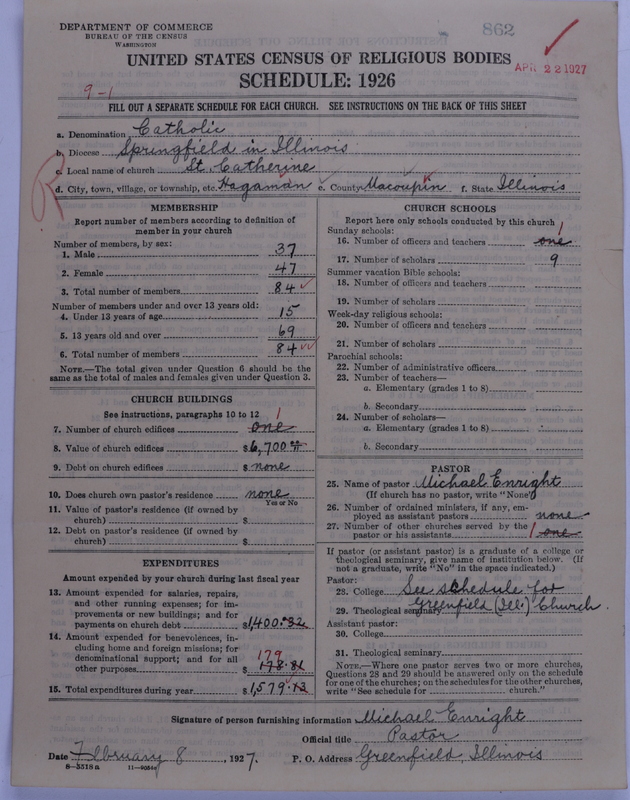 DEPARTMENT OF COMMERCE
BUREAU OF THE CENSUS
WASHINGTON
862
UNITED STATES CENSUS OF RELIGIOUS BODIES
APR 22 1927
SCHEDULE: 1926
9-1
FILL OUT A SEPARATE SCHEDULE FOR EACH CHURCH. SEE INSTRUCTIONS ON THE BACK OF THIS SHEET
a. Denomination Catholic
b. Diocese Springfield in Illinois
c. Local name of church St. Catherine
d. City, town, village, or township, etc. Hagaman e. County Macoupin f. State Illinois
MEMBERSHIP
Report number of members according to definition of
member in your church
Number of members, by sex:
1. Male 37
2. Female 47
3. Total number of members 84
Number of members under and over 13 years old:
4. Under 13 years of age 15
5. 13 years old and over 69
6. Total number of members 84
NOTE.—The total given under Question 6 should be the
same as the total of males and females given under Question 3.
CHURCH BUILDINGS
See instructions, paragraphs 10 to 12
1
7. Number of church edifices one
8. Value of church edifices $6,700
9. Debt on church edifices $ none
10. Does church own pastor's residence none
Yes or No
11. Value of pastor's residence (if owned by
church) $
12. Debt on pastor's residence (if owned by
church) $
EXPENDITURES
Amount expended by your church during last fiscal year
13. Amount expended for salaries, repairs,
and other running expenses; for im-
provements or new buildings; and for
payments on church debt $1,400.32
14. Amount expended for benevolences, in-
cluding home and foreign missions; for
denominational support; and for all
179
other purposes $ 178.81
15. Total expenditures during year $1,579.13
CHURCH SCHOOLS
Report here only schools conducted by this church
Sunday schools:
1
16. Number of officers and teachers one
17. Number of scholars 9
Summer vacation Bible schools:
18. Number of officers and teachers
19. Number of scholars
Week-day religious schools:
20. Number of officers and teachers
21. Number of scholars
Parochial schools:
22. Number of administrative officers
23. Number of teachers—
a. Elementary (grades 1 to 8)
b. Secondary
24. Number of scholars—
a. Elementary (grades 1 to 8)
b. Secondary
PASTOR
25. Name of pastor Michael Enright
(If church has no pastor, write "None")
26. Number of ordained ministers, if any, em-
ployed as assistant pastors none
27. Number of other churches served by the
pastor or his assistants 1 one
If pastor (or assistant pastor) is a graduate of a college or
theological seminary, give name of institution below. (If
not a graduate, write "No" in the space indicated.)
Pastor:
28. College See schedule for
29. Theological seminary Greenfield (Ill.) Church.
Assistant pastor:
30. College
31. Theological seminary
NOTE.—Where one pastor serves two or more churches,
Questions 28 and 29 should be answered only on the schedule
for one of the churches; on the schedules for the other churches,
write "See schedule for church."
Signature of person furnishing information Michael Enright
Official title Pastor
Date February 8, 1927. P. O. Address Greenfield, Illinois
8-3518a